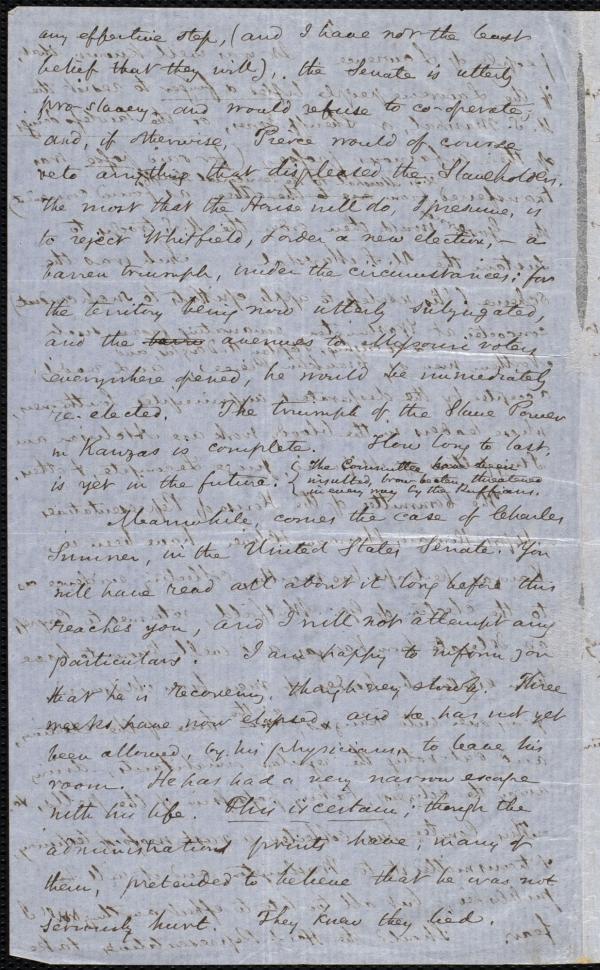 any effective step, (and I have not the least
belief that they will), the Senate is utterly
pro-slavery, and would refuse to co-operate;
and, if otherwise, Pierce would of course
veto anything that displeased the Slaveholders.
The most that the House will do, I presume, is
to reject Whitfield, & order a new election, - a
barren triumph, under the circumstances; for
the territory being now utterly subjugated,
and the avenues to Missouri voters
everywhere opened, he would be immediately
re-elected. The triumph of the Slave Power
in Kanzas is complete. How long to last,
is yet in the future. { The Committee have been
insulted, brow-beaten, threatened
in every way by the Ruffians.
Meanwhile, comes the case of Charles
Sumner, in the United States Senate. You
will have read all about it long before this
reaches you, and I will not attempt any
particulars. I am happy to inform you
that he is recovering, though very slowly. Three
weeks have now elapsed, and he has not yet
been allowed, by his physicians, to leave his
room. He has had a very narrow escape
with his life. This is certain; though the
administration prints have, many of
them, pretended to believe that he was not
seriously hurt. They knew they lied.